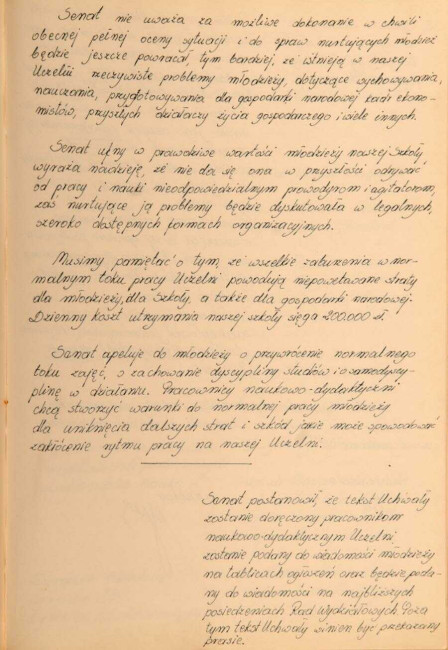 Senat nie uważa za możliwe dokonanie w chwili
obecnej pełnej oceny sytuacji i do spraw nurtujących młodzież
będzie jeszcze powracał, tym bardziej, że istnieją w naszej
Uczelni rzeczywiste problemy młodzieży, dotyczące wychowywania,
nauczania, przygotowywania dla gospodarki narodowej kadr ekono-
mistów, przyszłych działaczy życia gospodarczego i wiele innych.
Senat ufny w prawdziwe wartości młodzieży naszej Szkoły,
wyraża nadzieję, że nie da się ona w przyszłości odrywać
od pracy i nauki nieodpowiedzialnym prowodyrom i agitatorom,
zaś nurtujące ją problemy będzie dyskutowała w legalnych,
szeroko dostępnych formach organizacyjnych.
Musimy pamiętać o tym, że wszelkie zaburzenia w nor-
malnym toku pracy Uczelni powodują niepowetowane straty
dla młodzieży, dla Szkoły, a także dla gospodarki narodowej.
Dzienny koszt utrzymania naszej szkoły sięga 200.000 zł.
Senat apeluje do młodzieży o przywrócenie normalnego
toku zajęć, o zachowanie dyscypliny studiów i o samodyscy-
plinę w działaniu. Pracownicy naukowo-dydaktyczni
chcą stworzyć warunki do normalnej pracy młodzieży
dla uniknięcia dalszych strat i szkód jakie może spowodować
zakłócenie rytmu pracy na naszej Uczelni.
Senat postanowił, że tekst Uchwały
zostanie doręczony pracownikom
naukowo-dydaktycznym Uczelni,
zostanie podany do wiadomości młodzieży
na tablicach ogłoszeń oraz będzie poda-
ny do wiadomości na najbliższych
posiedzeniach Rad Wydziałowych. Poza
tym tekst Uchwały winien być przekazany
prasie.